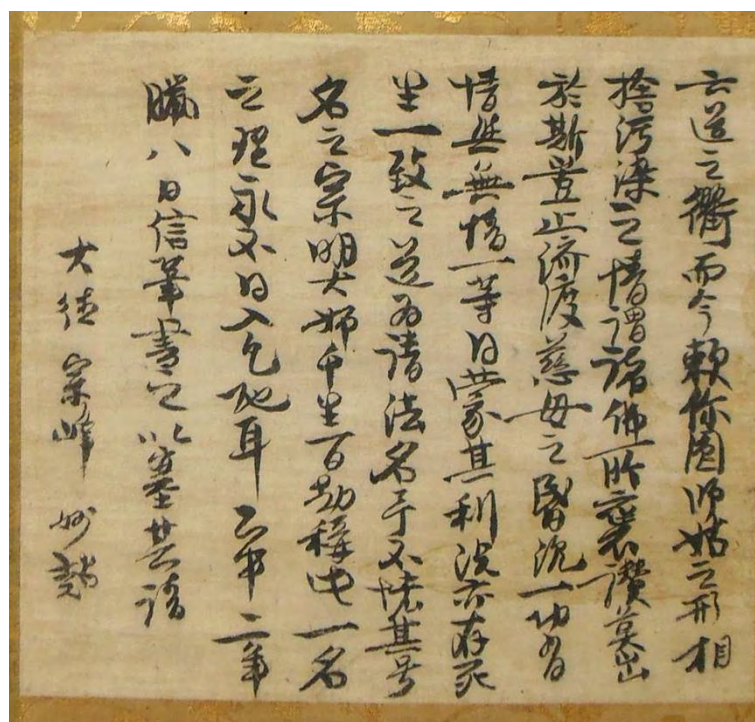 六道之衢而今頼你圓師姑之形相
捨汚染之情謂諸佛所褒讃莫出
於斯豈止済度慈母之昏沈一切有
情無情一等日蒙其利況亦存死
生一致之道為請法名予不其号
名之宗明大師千生百劫称此一名
之理永不入耳二年
臘八日信筆書之以塞其請
大徳 宗峰 妙超